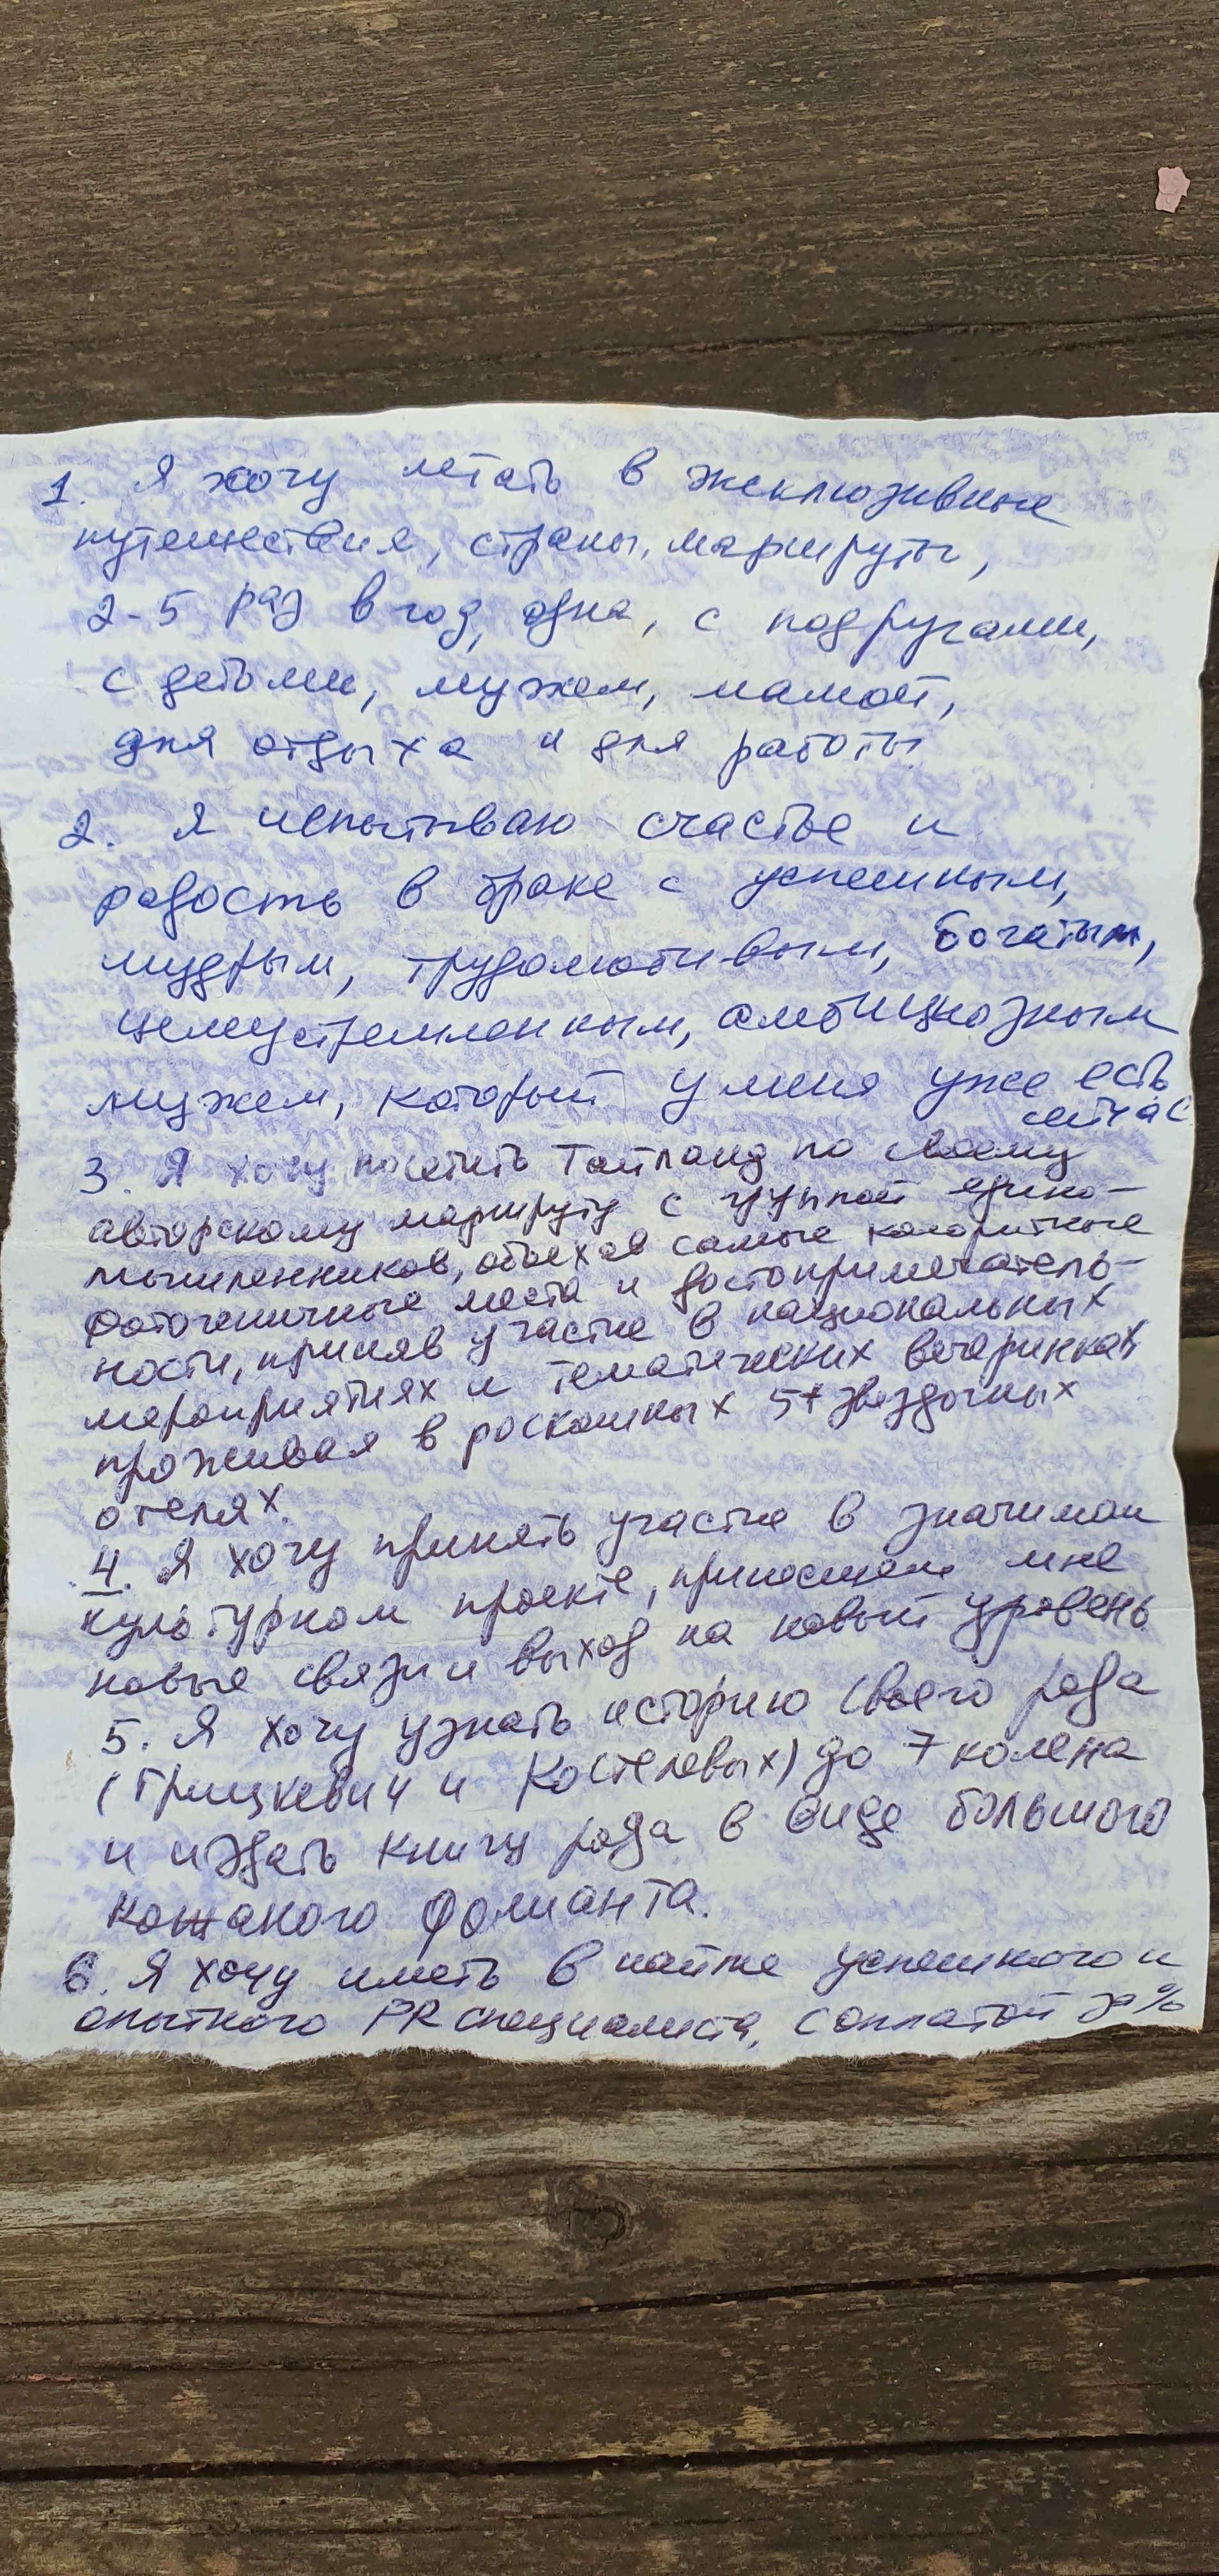 1. Я хочу летать в эксклюзивные
путешествия, страны, маршруты,
2-5 раз в год, одна, с подругами,
с детьми, мужем, мамой,
для отдыха и для работы.
2. Я испытываю счастье и
радость в браке с успешным,
мудрым, трудолюбивым, богатым,
целеустремленным, амбициозным
мужем, который у меня уже есть
сейчас
3. Я хочу посетить Тайланд по своему
авторскому маршруту с группой едино-
мышленников, объехав самые колоритные
фотогеничные места и достопримечатель-
ности, приняв участие в национальных
мероприятиях и тематических вечеринках
проживая в роскошных 5+ звездочных
отелях.
4. Я хочу принять участие в значимом
культурном проекте, приносящем мне
новые связи и выход на новый уровень
5. Я хочу узнать историю своего рода
(Грицкевич и Костелевых) до 7 колена
и издать книгу рода в виде большого
кожаного фолианта.
6. Я хочу иметь в найме успешного и
опытного PR специалиста, с оплатой %